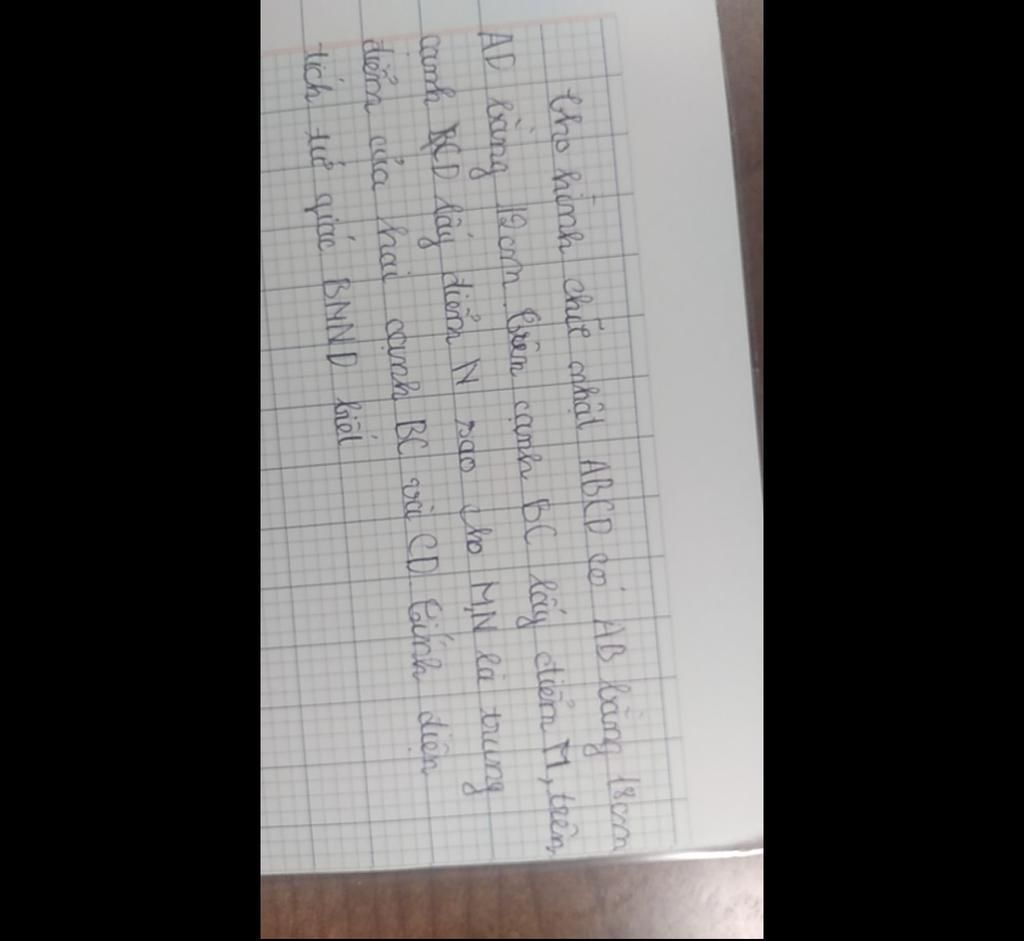 Cho hình chữ nhật ABCD có AB bằng 18cm
AD bằng 12cm. Trên cạnh BC lấy điểm M, trên
cạnh CD lấy điểm N sao cho M,N là trung
điểm của hai cạnh BC và CD tính diện
tích tứ giác BMND biết